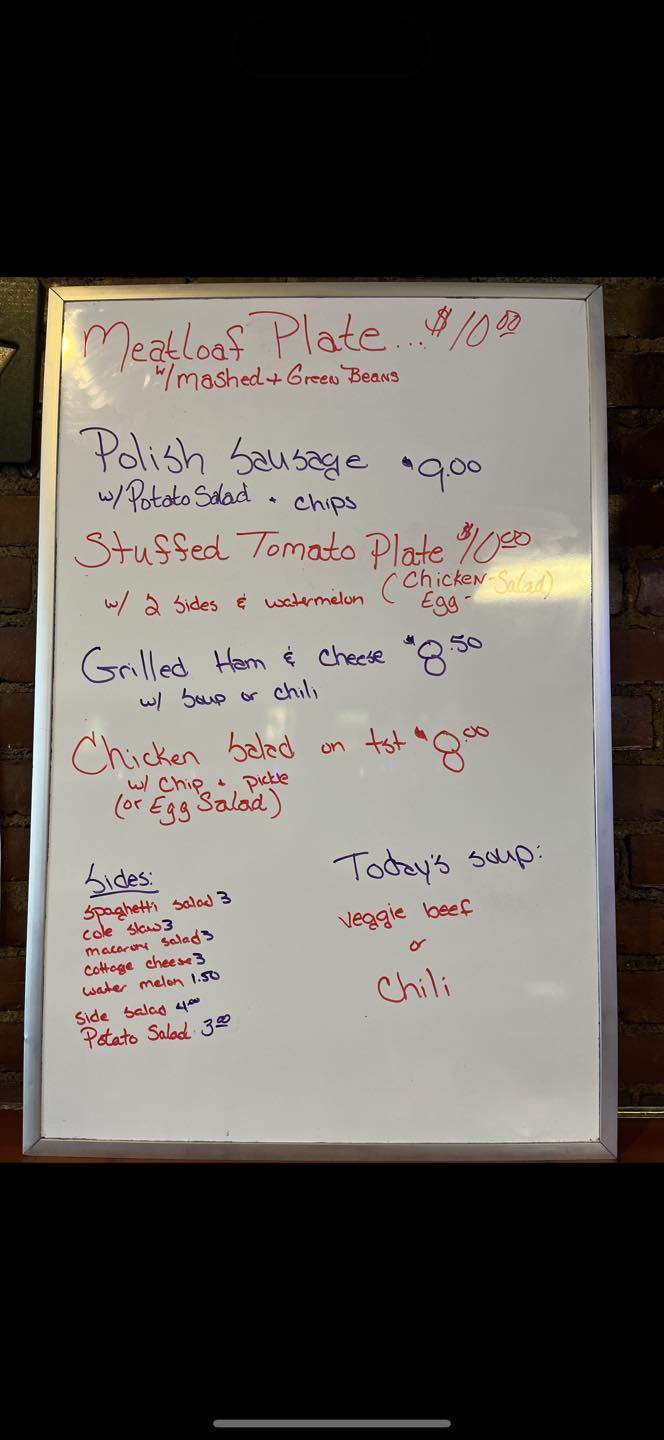 Meatloaf Plate... $10.00
w/mashed + Green Beans
Polish Sausage $9.00
w/Potato Salad + chips
Stuffed Tomato Plate $10.00
w/ 2 sides & watermelon (Chicken-Salad)
Egg-
Grilled Ham & Cheese $8.50
w/ Soup or chili
Chicken Salad on tst $8.00
w/ chip + pickle
(or Egg Salad)
Sides:
spaghetti salad 3
cole slaw 3
macaroni salad 3
cottage cheese 3
water melon 1.50
side salad 4.00
Potato Salad 3.00
Today's soup:
veggie beef
or
Chili